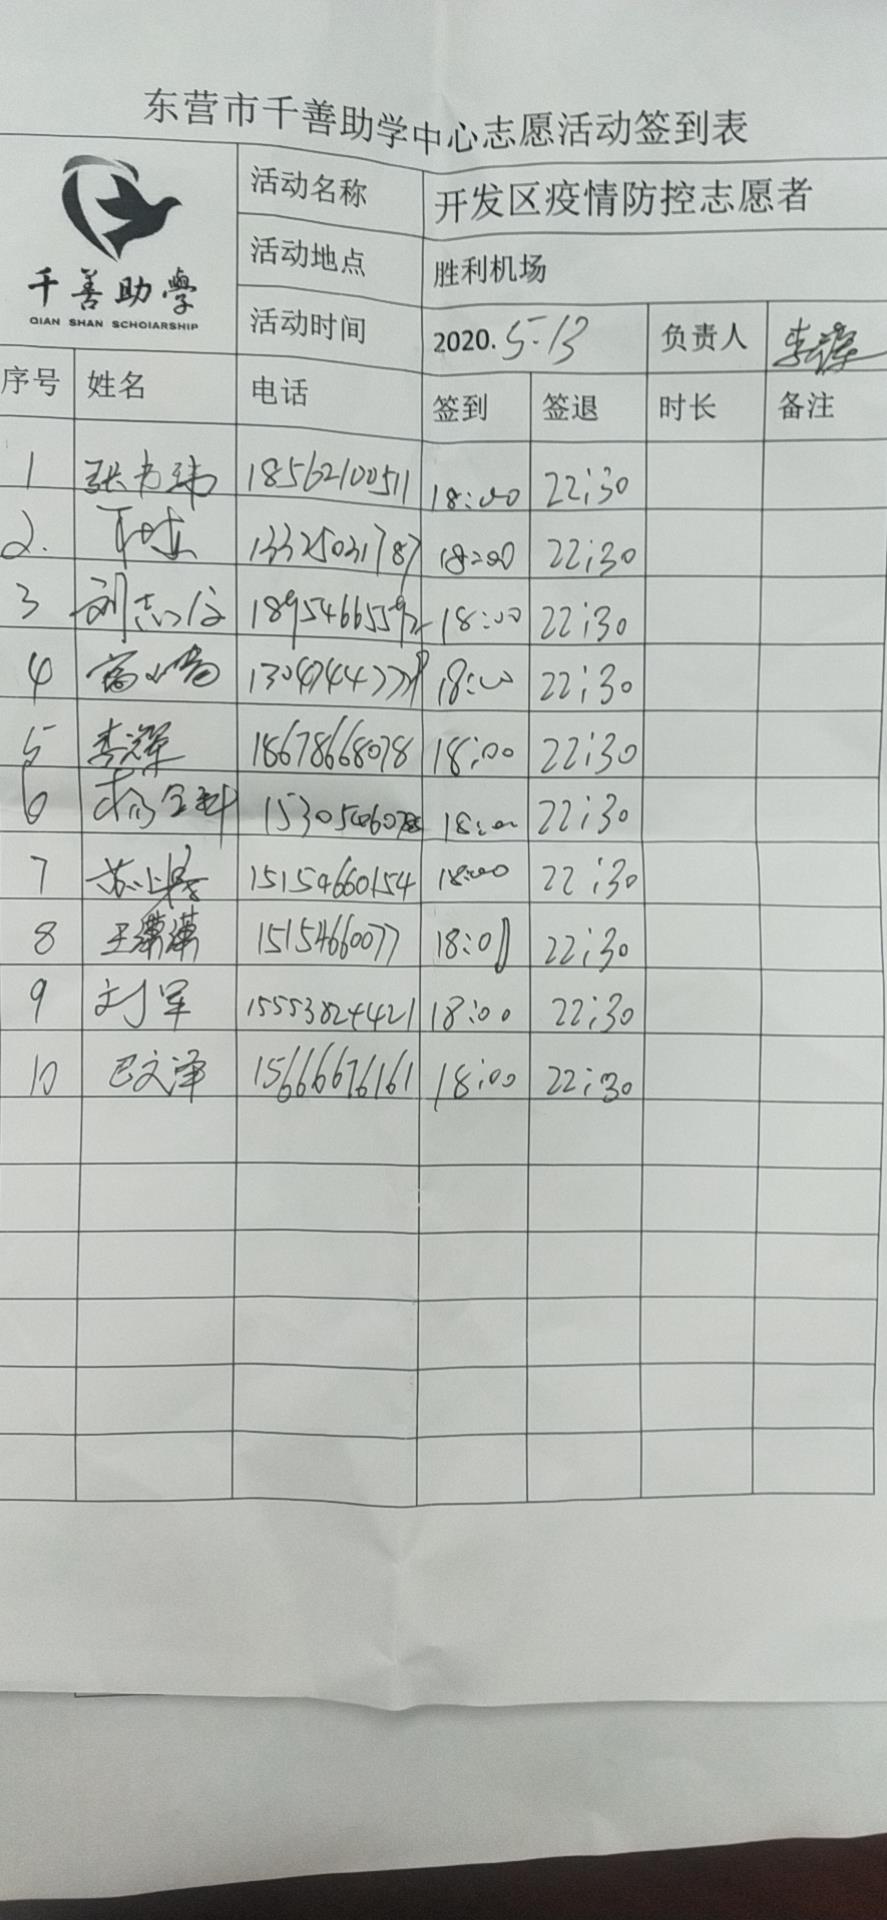 东营市千善助学中心志愿活动签到表
千善助學
QIAN SHAN SCHOIARSHIP
活动名称 开发区疫情防控志愿者
活动地点 胜利机场
活动时间 2020.5.13 负责人 李辉
序号 姓名 电话 签到 签退 时长 备注
1 18562100511 18:00 22:30
2. 13325031787 18:00 22:30
3 刘志 18954665592 18:00 22:30
4 18:00 22:30
5 李辉 18678668078 18:00 22:30
6 18:00 22:30
7 15154660154 18:00 22:30
8 王潇潇 15154660077 18:00 22:30
9 刘军 15553824421 18:00 22:30
10 巴文泽 15666676161 18:00 22:30